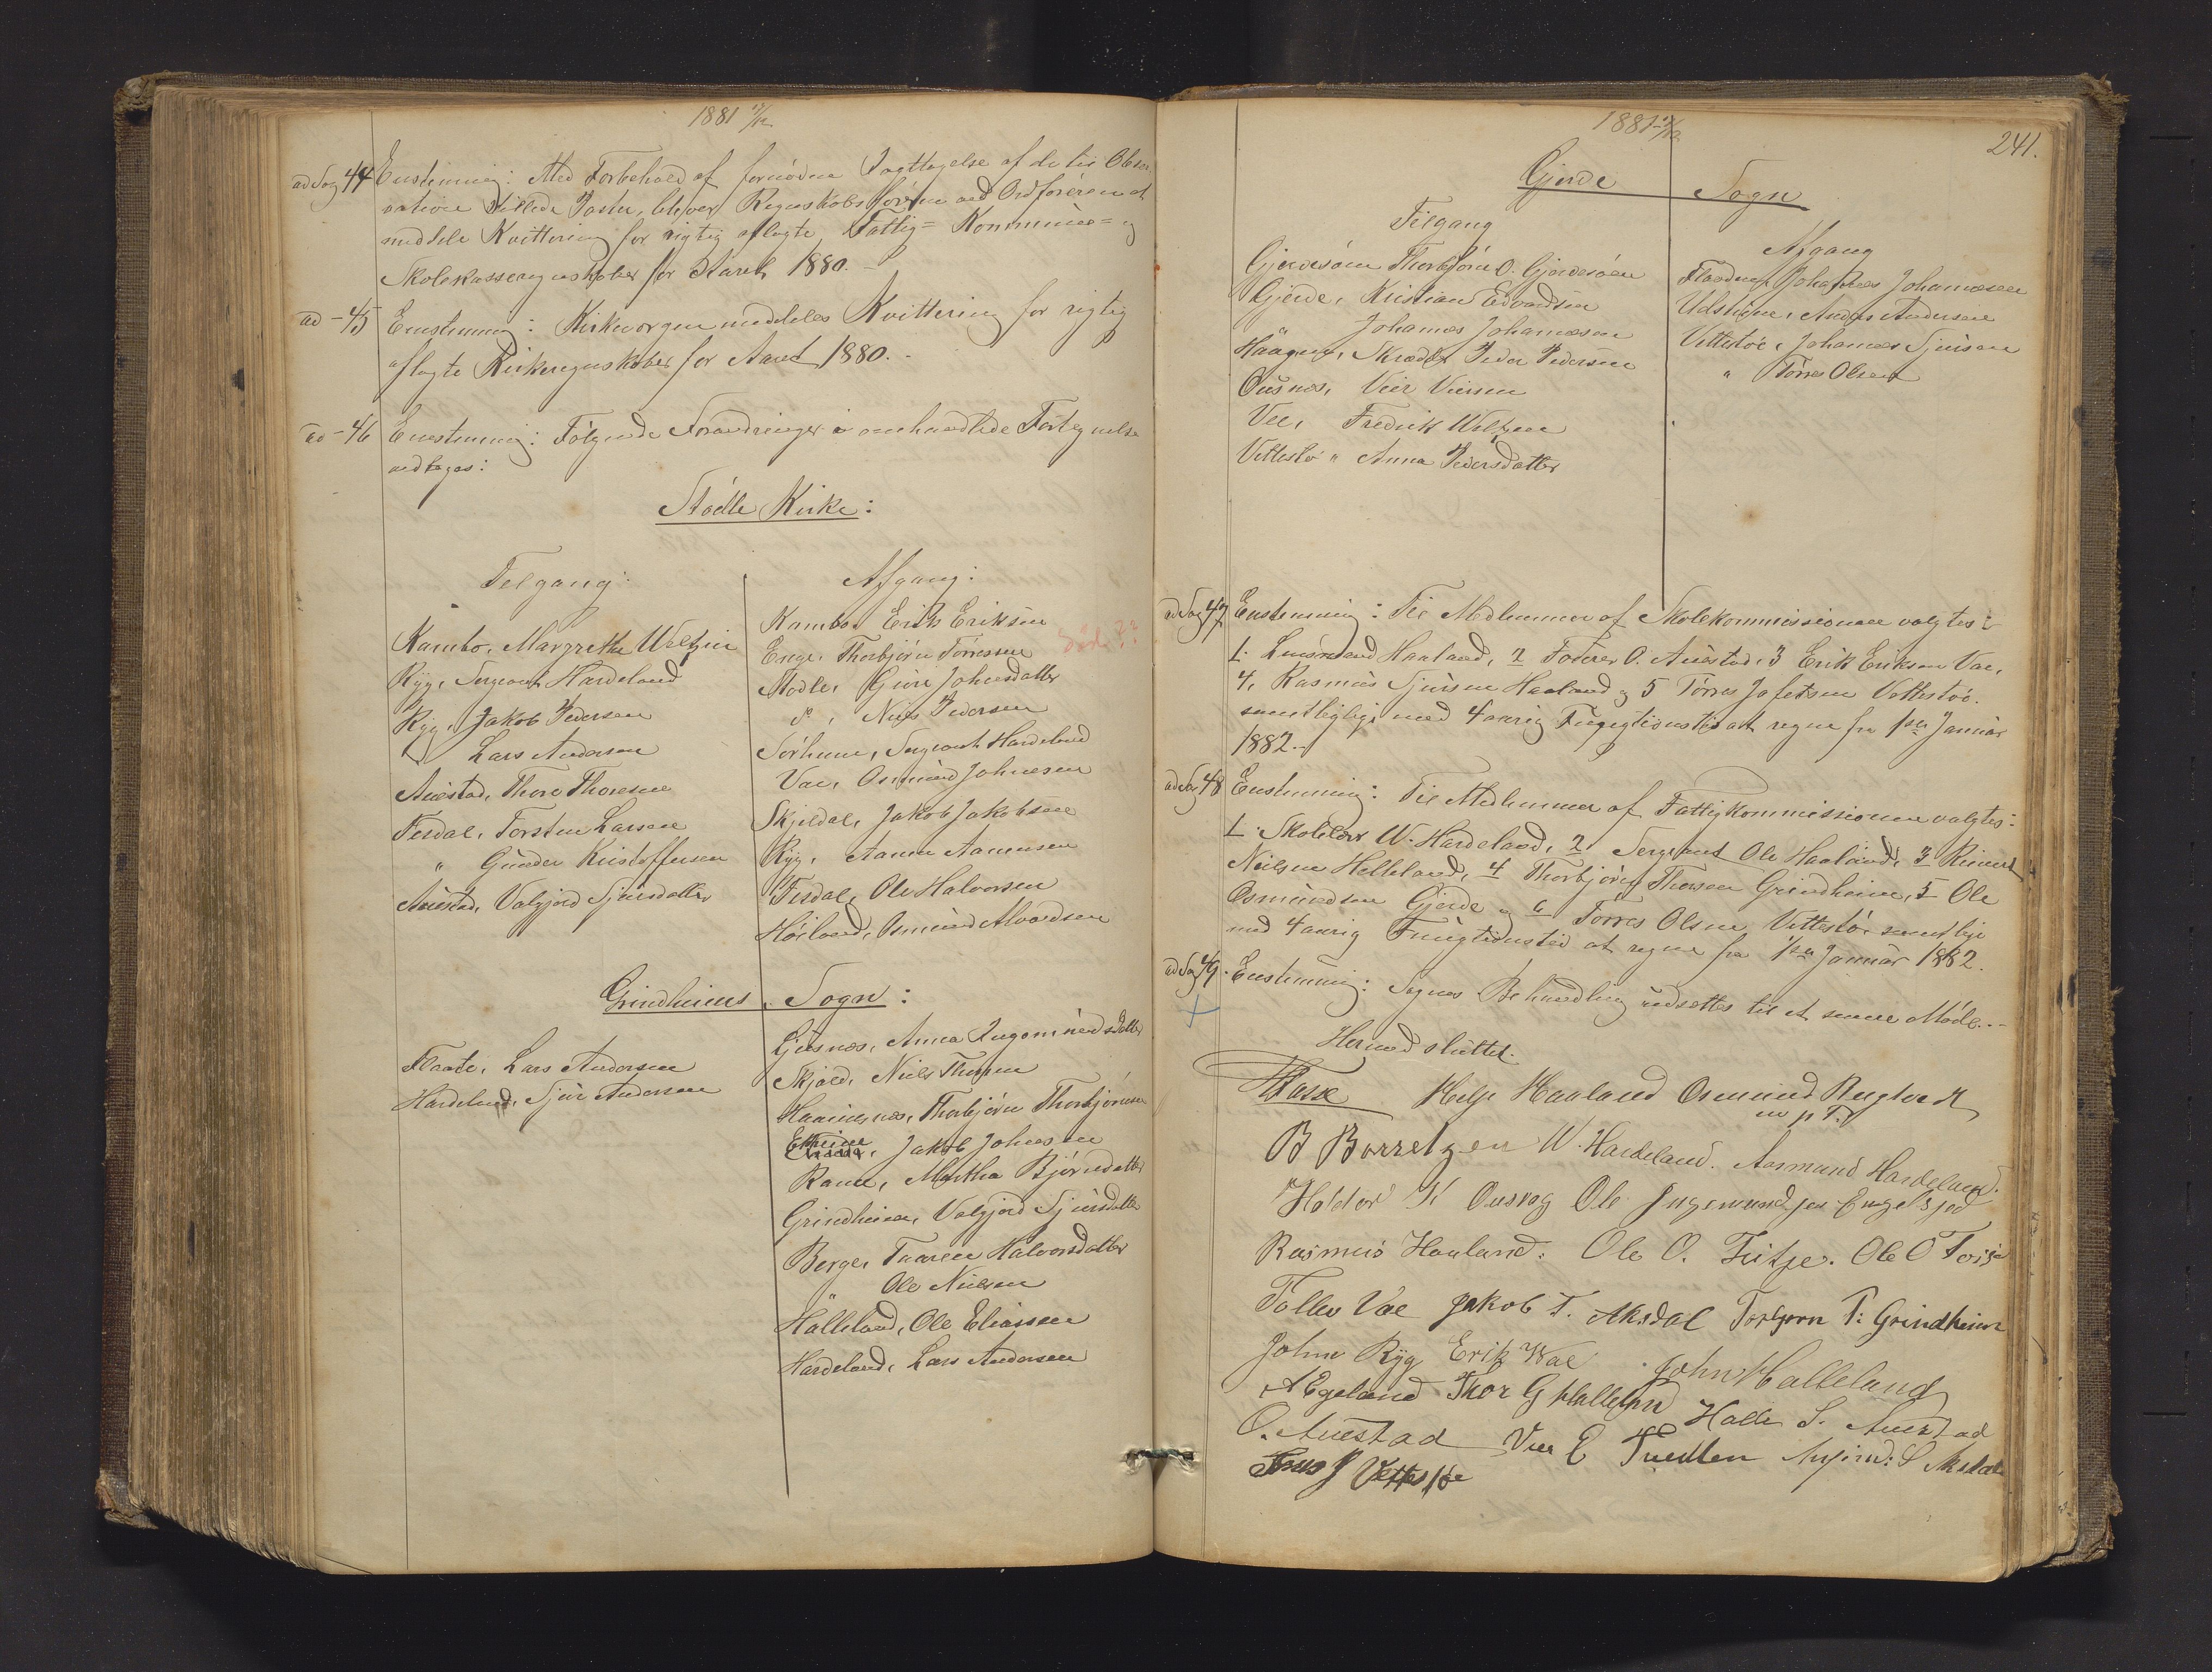 1881 17/12
ad Sag 44 Enstemmig: Med Forbehold af fornøden Iagttagelse af de til Obser-
vationer stillede Poster, bliver Regnskabsføreren ved Ordføreren at
meddele Kvittering for rigtig aflagte Fattig= Kommune= og
Skolekasseregnskaber for Aaret 1880. -
ad - 45 Enstemmig: Kirkeværgen meddeles Kvittering for rigtig
aflagte Kirkeregnskaber for Aaret 1880. -
ad - 46 Enstemmig: Følgende Forandringer i omhandlede Fortegnelse
vedtages:
Stødle Kirke:
Tilgang: Afgang:
Kambo, Margrethe Weltzin
Ryg, Sergeant Hardeland
Ryg, Jakob Pedersen
" Lars Andersen
Auestad, Thore Thoresen
Tesdal, Torsten Larsen
" Gunder Kristoffersen
Auestad, Valgjerd Sjursdatter
Kambo, Erik Eriksen
Enge, Thorbjørn Tørressen død??
Stødle, Guri Johnsdatter
do, Niels Pedersen
Sørhuus, Sergeant Hardeland
Vae, Osmund Johnesen
Skjeldal, Jakob Jakobsen
Ryg, Aamen Aamensen
Tesdal, Ole Halvorsen
Høiland, Osmund Alvardsen
Grindheims Sogn:
Flaate, Lars Andersen
Hardeland, Sjur Andersen
Gjusnæs, Anna Ingemundsdatter
Skjold, Niels Thorsen
Haavesnæs, Thorbjørn Thorbjørnsen
Ekreine, Jakob Johnsen
Ramn, Martha Bjørnsdatter
Grindheim, Valgjerd Sjursdatter
Berge, Taaren Halvorsdatter
" Ole Nielsen
Hålleland, Ole Eliassen
Hardeland, Lars Andersen
1881 17/12
241.
Gjerde Sogn
Tilgang Afgang
Gjerdesøen Thorbjørn O. Gjerdesøen
Gjerde, Kristian Edvardsen
" Johannes Johannesen
Haagenæs, Skrædder Peder Pedersen
Ousnæs, Vier Viersen
Vee, Fredrik Weltzen
Vettestø " Anna Pedersdatter
Johannes Johannesen
Udstein, Anders Andersen
Vettestøe, Johannes Sjursen
" Tørres Olsen
ad Sag 47 Enstemmig: Til Medlemmer af Skolekommissionen valgtes:
1. Lensmand Haaland, 2 Forrer O. Auestad, 3 Erik Eriksen Vae,
4, Rasmus Sjursen Haaland og 5 Tørres Jafetsen Vettestøe.
samtlige med 4 aarig Fungtionstid at regne fra 1ste Januar
1882. -
ad Sag 48 Enstemmig: Til Medlemmer af Fattigkommissionen valgtes:
1. Skolelærer W. Hardeland, 2. Sergeant Ole Haaland, 3 Reinert
Neilsen Helleland, 4 Thorbjørn Thorsen Grindheim, 5 Ole
Osmundsen Gjerde og 6 Tørres Olsen Vettestø samtlige
med 4 aarig Fungtionstid at regne fra 1ste Januar 1882.
ad Sag 49. Enstemmig: Sagens Behandling udsættes til et senere Møde. -
Hermed sluttet.
Helje Haaland Osmund
m p P.
B Borretzen W. Hardeland. Aasmund Hardeland.
Haldor K Ousvag Ole Ingemundsen Engelsjord
Rasmus Haaland. Ole O. Fitje. Ole O
Tollev Vae Jakob T. Aksdal Torbjørn T: Grindheim
John Ryg Erik Wae John Halleland
A Egeland Thor G Halleland Halle S. Auestad
O. Auestad Vier E Tuedten S Aksdal
Tørres J Vettestøe